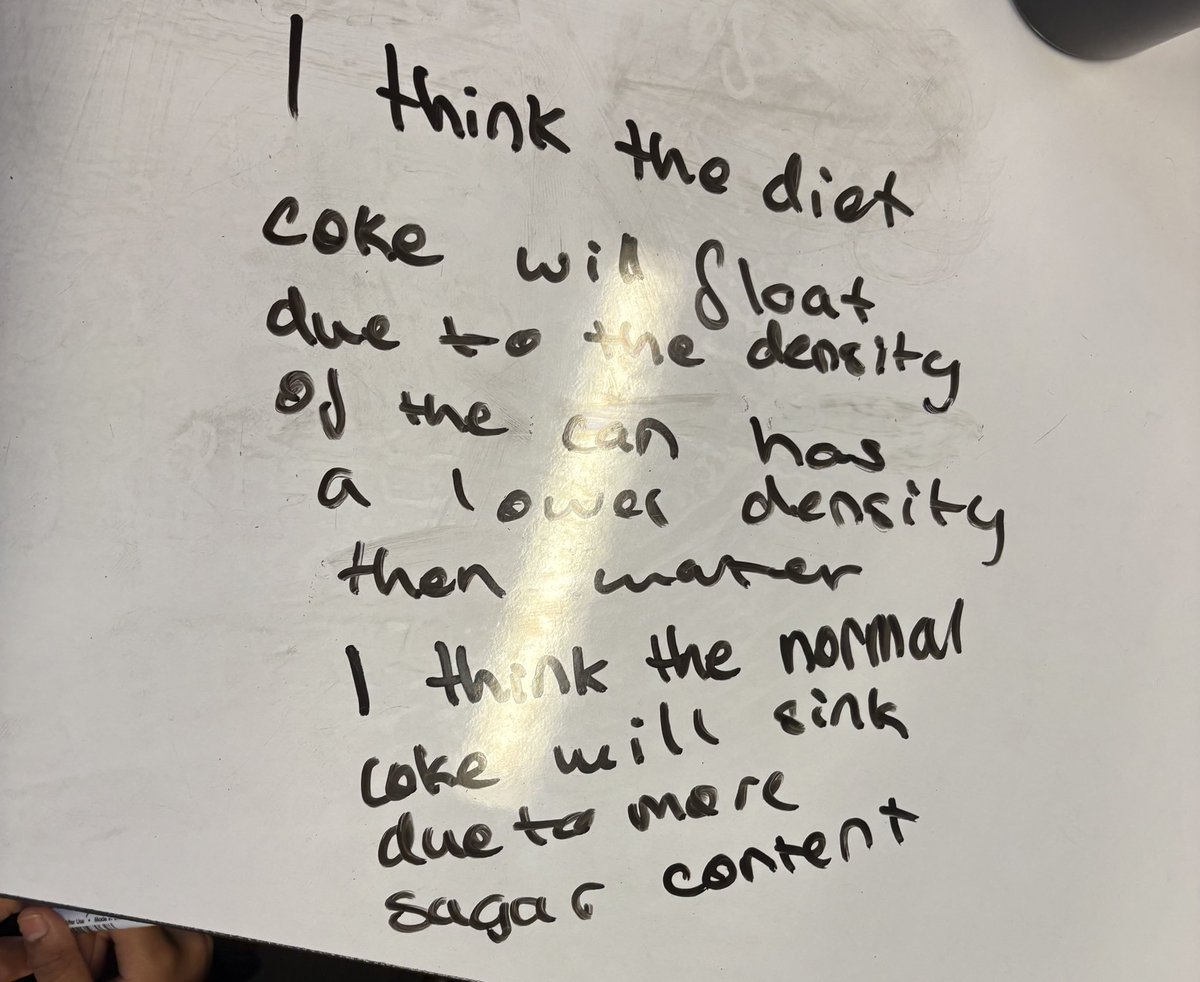 I think the diet
coke will float
due to the density
of the can has
a lower density
then water
I think the normal
coke will sink
due to more
sugar content